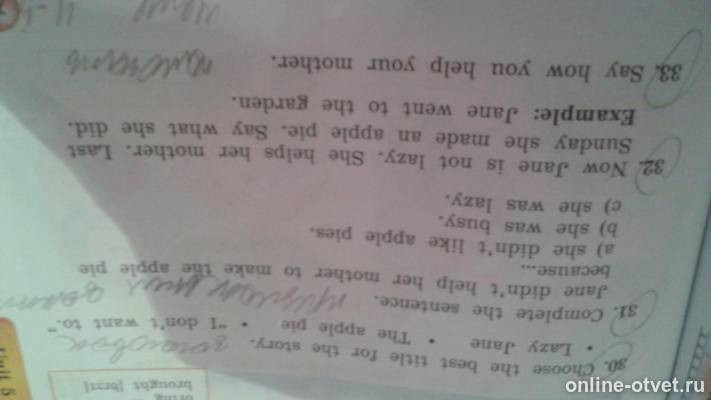 Unit 5
bring
brought [brɔ:t]
30. Choose the best title for the story.
• Lazy Jane • The apple pie • "I don't want to."
31. Complete the sentence.
Jane didn't help her mother to make the apple pie
because...
a) she didn't like apple pies.
b) she was busy.
c) she was lazy.
32. Now Jane is not lazy. She helps her mother. Last
Sunday she made an apple pie. Say what she did.
Example: Jane went to the garden.
33. Say how you help your mother.
online-otvet.ru